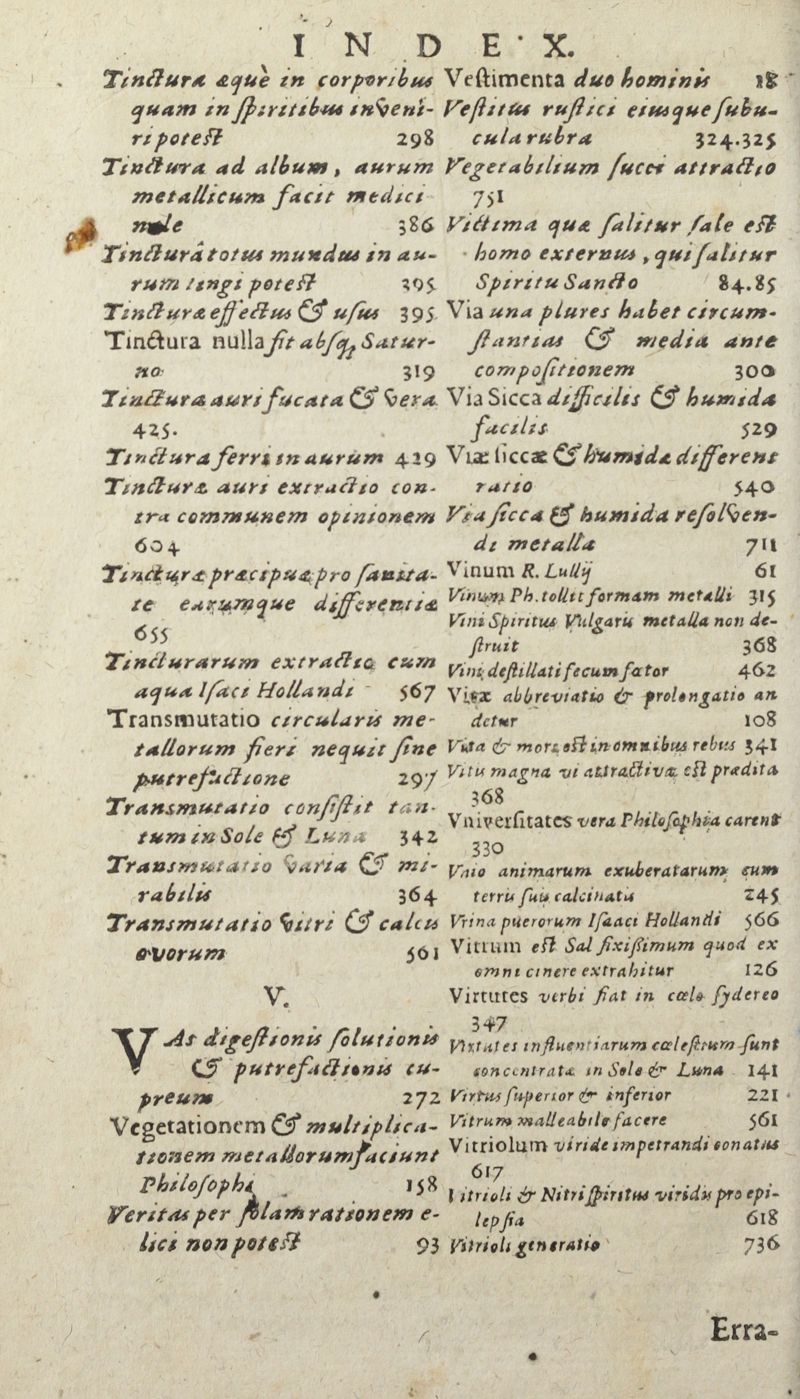 INDEX.
Tinctura æque in corporibus
quam in ſpiritibus inveni-
ri poteſt 298
Tinctura ad album, aurum
metallicum facit medici
nale 386
Tincturâ totus mundus in au-
rum tingi poteſt 395
Tincturæ effectus & uſus 395
Tinctura nulla fit abſq; Satur-
no 319
Tinctura auri fucata & vera
425.
Tinctura ferri in aurum 429
Tincturæ auri extractio con-
tra communem opinionem
604
Tincturæ præcipuæ pro ſanita-
te earumque differentia
655
Tincturarum extractio cum
aqua Iſaci Hollandi 567
Transmutatio circularis me-
tallorum fieri nequit ſine
putrefactione 297
Transmutatio conſiſtit tan-
tum in Sole & Luna 342
Transmutatio varia & mi-
rabilis 364
Transmutatio vitri & calcis
ovorum 561
V.
VAs digeſtionis ſolutionis
& putrefactionis cu-
preum 272
Vegetationem & multiplica-
tionem metallorum faciunt
Philoſophi 158
Veritas per ſolam rationem e-
lici non poteſt 93
Veſtimenta duo hominis 18
Veſtitus ruſtici eiusque ſubu-
cula rubra 324.325
Vegetabilium ſucci attractio
751
Victima quæ ſalitur ſale eſt
homo externus, qui ſalitur
Spiritu Sancto 84.85
Via una plures habet circum-
ſtantias & media ante
compoſitionem 300
Via Sicca difficilis & humida
facilis 529
Viæ ſiccæ & humidæ differens
ratio 540
Via ſicca & humida reſolven-
di metalla 711
Vinum R. Lullij 61
Vinum Ph. tollit formam metalli 315
Vini Spiritus Vulgaris metalla non de-
ſtruit 368
Vini deſtillati fecum fœtor 462
Vitæ abbreviatio & prolongatio an
detur 108
Vita & mors eſt in omnibus rebus 341
Vitu magna vi attractivæ eſt prædita
368
Vniverſitates vera Philoſophia carent
330
Vnio animarum exuberatarum cum
terris ſuis calcinatis 245
Vrina puerorum Iſaaci Hollandi 566
Vitrum eſt Sal fixiſſimum quod ex
omni cinere extrahitur 126
Virtutes verbi fiat in cœlo ſydereo
347
Virtutes influentiarum cœleſtium ſunt
concentratæ in Sole & Luna 141
Virtus ſuperior & inferior 221
Vitrum malleabile facere 561
Vitriolum viride impetrandi conatus
617
Vitrioli & Nitri ſpiritus viridis pro epi-
lepſia 618
Vitrioli generatio 736
Erra-